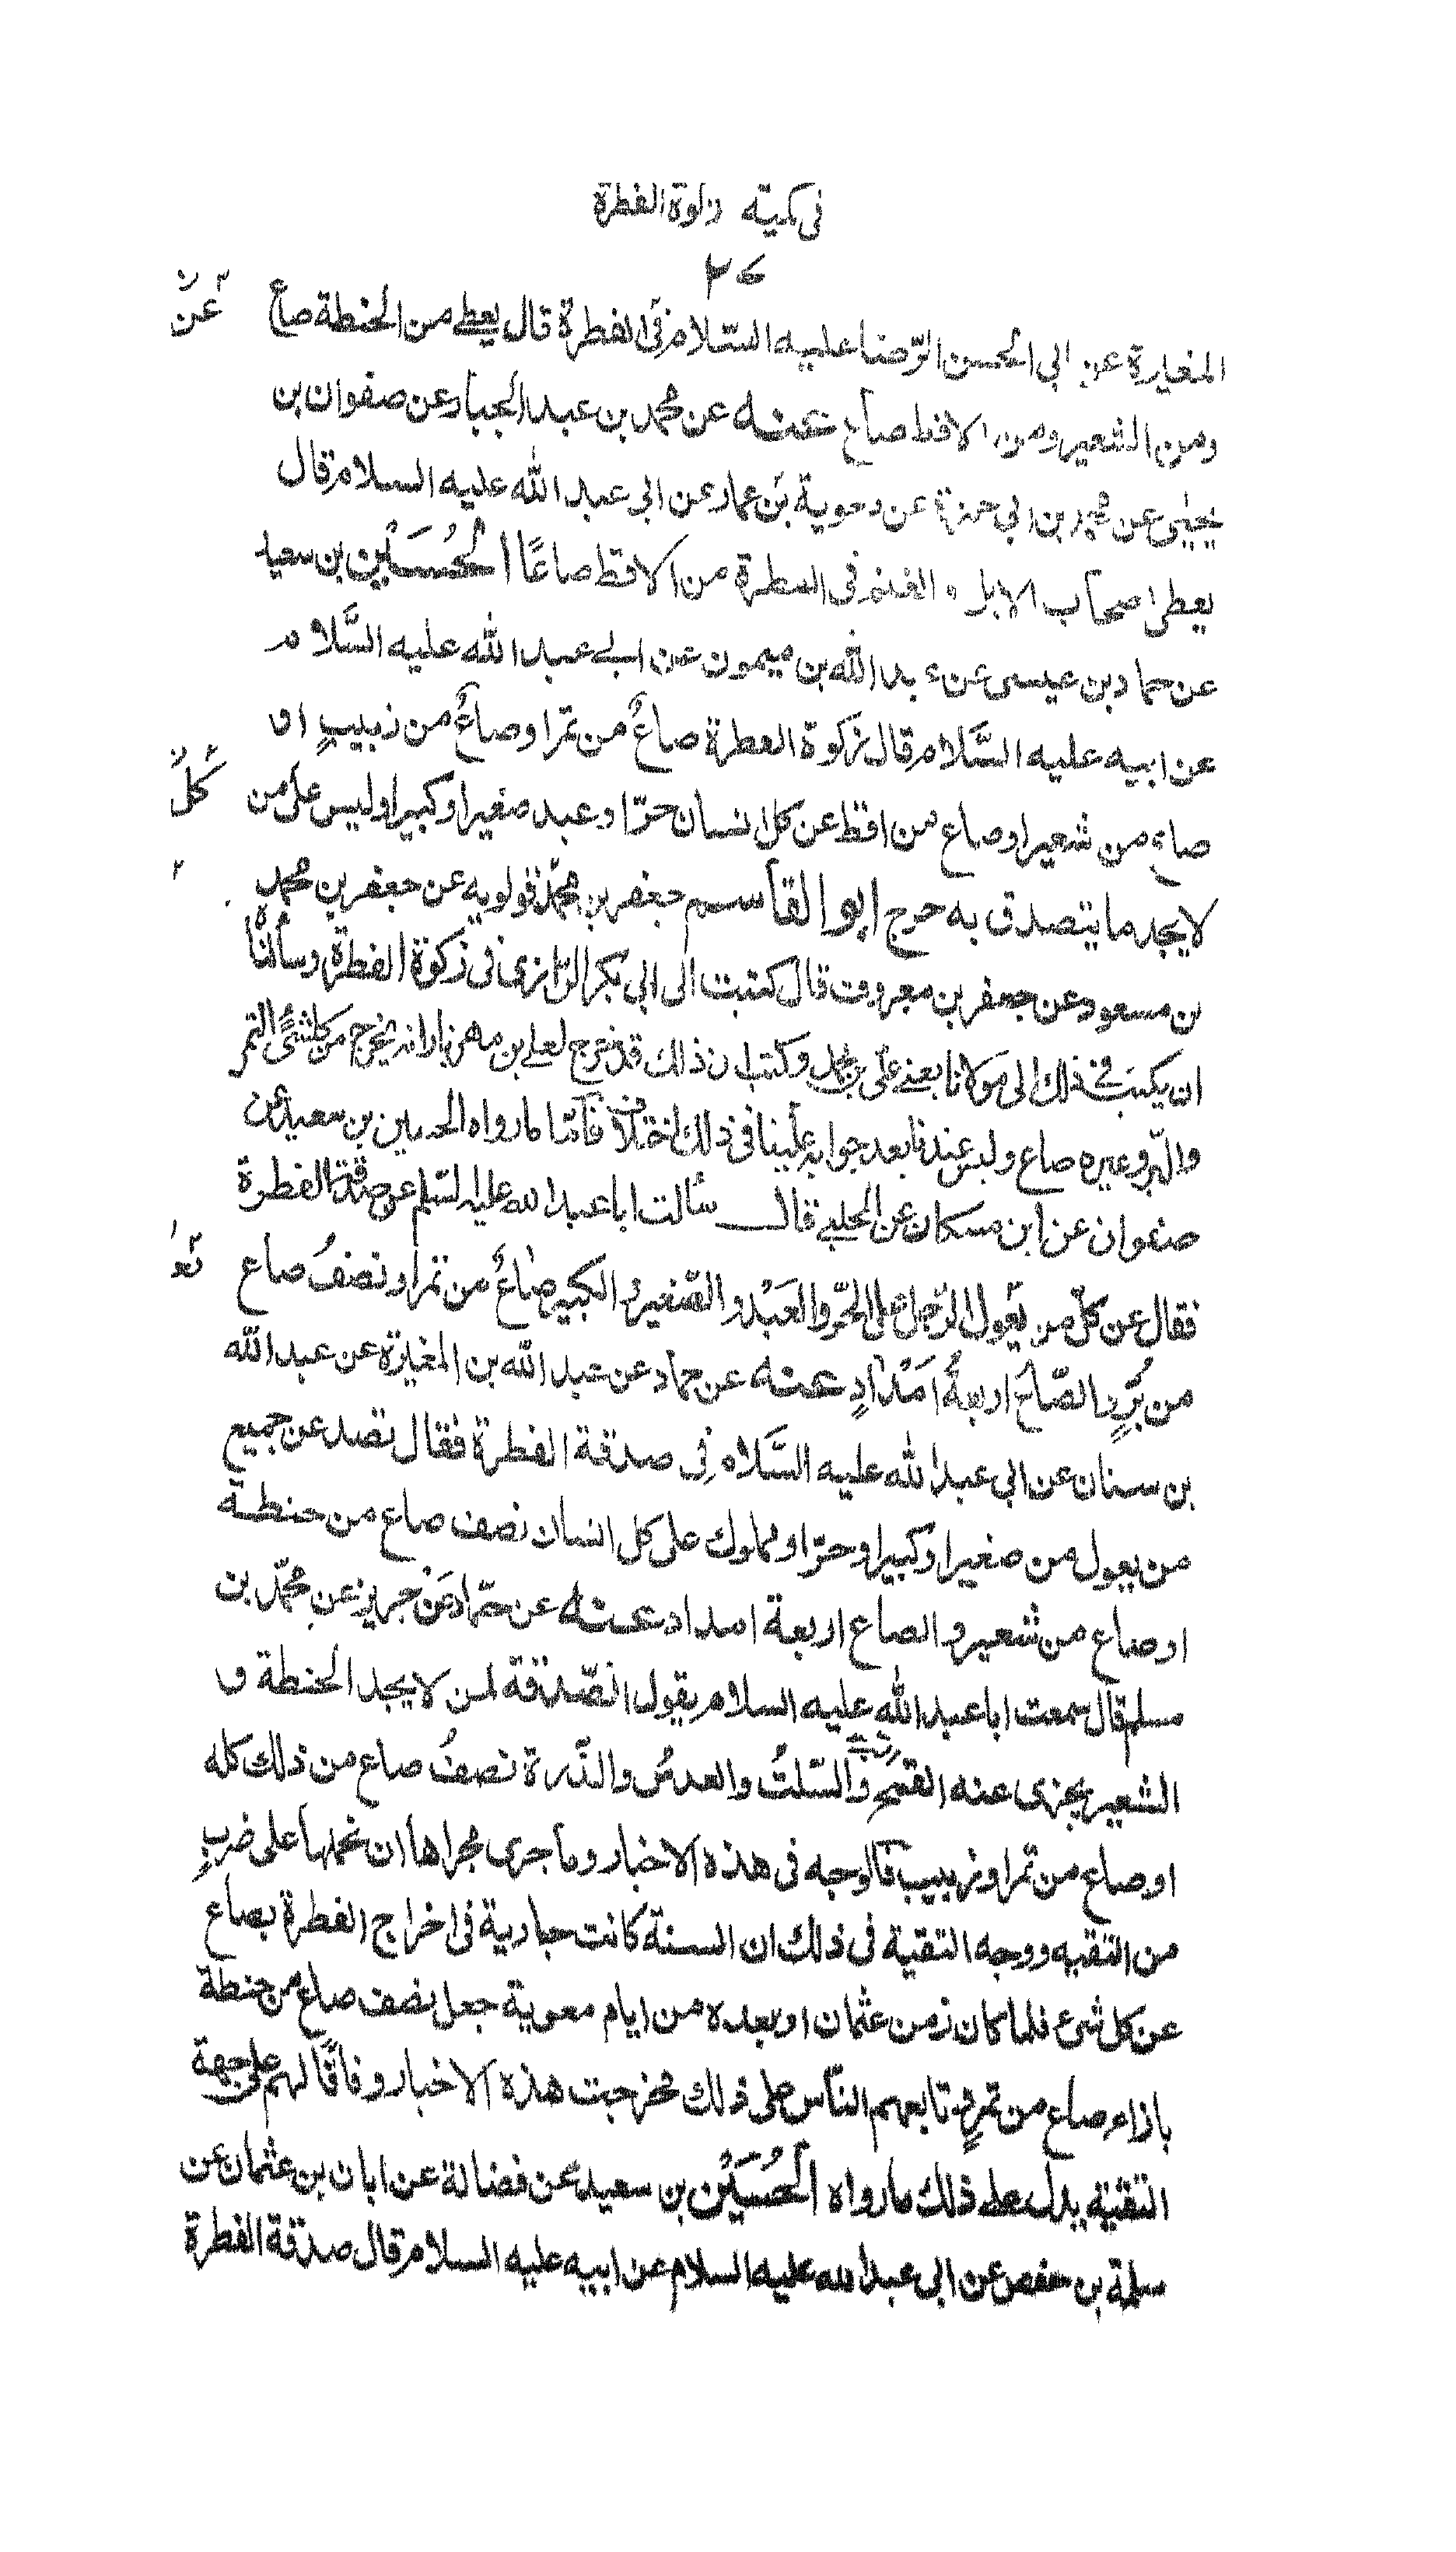 في كمية زكوة الفطرة
٢٧
المغيرة عن ابى الحسن الرّضا عليه السّلام في الفطرة قال يعطى من الحنطة صاع
ومن الشعير ومن الاقط صاع عنه عن محمد بن عبد الجبار عن صفوان بن
يحيى عن محمد بن ابي حمزة عن معوية بن عمار عن ابي عبد الله عليه السلام قال
يعطى اصحاب الابل و الغنم في الفطرة من الاقط صاعًا الحُسَيْن بن سعيد
عن حماد بن عيسى عن عبد الله بن ميمون عن ابي عبد الله عليه السَّلام
عن ابيه عليه السَّلام قال زكوة الفطرة صاعٌ من تمر او صاعٌ من زبيبٍ او
صاع من شعير او صاع من اقط عن كل انسان حرّ او عبد صغير او كبير وليس على من
لا يجد ما يتصدق به حرج ابو القاسم جعفر بن محمّد قولويه عن جعفر بن محمد
بن مسعود عن جعفر بن معروف قال كتبت الى ابي بكر الرّازى في زكوة الفطرة وسألناه
ان يكتب في ذلك الى مولانا يعنى علىّ بن محمد وكتب ان ذلك قد خرج لعلى بن مهزيار انه يخرج من كلّ شئ التمر
والبّر وغيره صاع وليس عندنا بعد جوابه علينا في ذلك اختلاف فأمّا ما رواه الحسين بن سعيد عن
صفوان عن ابن مسكان عن الحلبى قال سألت ابا عبد الله عليه السّلم عن صدقة الفطرة
فقال عن كلّ من يَعُول الرّجل على الحرّ والعَبْد والصّغير والكبير صاعٌ من تمر او نصفُ صاع
من بُرٍّ والصّاع اربعةُ اَمْدادٍ عنه عن حماد عن عبد الله بن المغيرة عن عبد الله
بن سنان عن ابي عبد الله عليه السَّلام في صدقة الفطرة فقال تصد عن جميع
من يعول من صغير او كبير او حرّ او مملوك على كل انسان نصف صاع من حنطة
او صاع من شعير و الصاع اربعة امداد عنه عن حمّاد عَن حريز عن محمّد بن
مسلم قال سمعت ابا عبد الله عليه السلام يقول الصّدقة لمن لا يجد الحنطة و
الشعير يجزى عنه القمح والسّلتُ والعدسُ والذّرة نصفُ صاع من ذلك كله
او صاع من تمر او زبيب فالوجه في هذه الاخبار وما جرى مجراها ان نحملها على ضربٍ
من التقيه ووجه التقية في ذلك ان السنة كانت جارية في اخراج الفطرة بصاع
عن كل شئ فلما كان زمن عثمان او بعده من ايام معوية جعل نصف صاع من حنطة
بازاء صاع من تمر و تابعهم النّاس على ذلك فخرجت هذه الاخبار وفاقًا لهم على جهة
التقيّة يدل على ذلك ما رواه الحُسَيْن بن سعيد عن فضالة عن ابان بن عثمان عن
سلمة بن حفص عن ابي عبد الله عليه السلام عن ابيه عليه السلام قال صدقة الفطرة
عَنْ
كُلّ